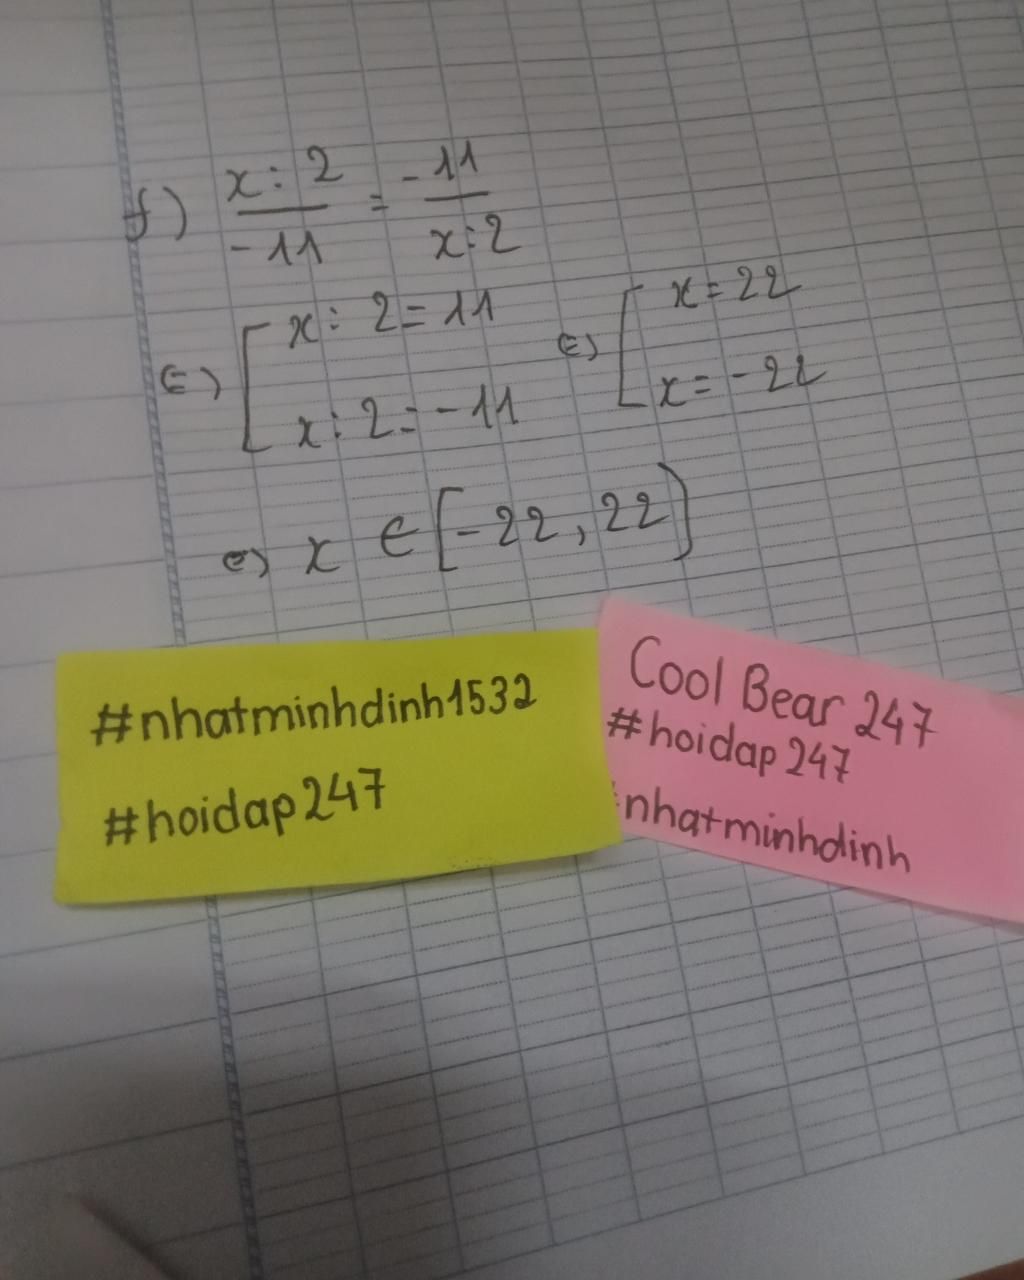 f) x : 2 / -11 = -11 / x : 2
⇔ [ x : 2 = 11 ⇔ [ x = 22
x : 2 = -11 x = -22
⇔ x ∈ [-22, 22)
#nhatminhdinh1532
#hoidap247
Cool Bear 247
#hoidap247
#nhatminhdinh